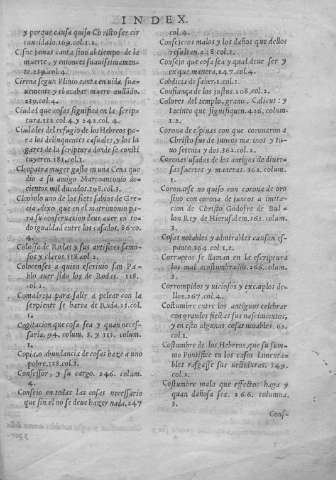 INDEX.
y porque causa quiso Christo ser cir
cuncidado.169.col.1.
Cisne porque canta sino al tiempo de la
muerte, y entonces suauissimamen
te.239.col.4.
Cirena segun Plinio canta en vida sua
uemente y el acabar muere aullado.
239.col.4.
Ciudad que cosas significa en la scriptu
ra.112.col.4.y 242.col.4.
Ciudades del refugio de los Hebreos pa
ra los delinquentes casuales, y los lu
gares de la scriptura donde se consti
tuyeron.181.col.1.
Cleopatra muger gasto en una cena que
dio a su amigo Marcoantonio do
cientos mil ducados.198.col.3.
Cleobolo uno de los siete sabios de Gre
cia, dixo que en el matrimonio pa
ra su conseruacion deue auer en to
do ygualdad entre los casados.86.co.
4.
Colosso de Rodas y sus artifices famo
sos y claros.118.col.2.
Colocenses a quien escriuio san Pa
blo auer sido los de Rodas. 118.
col.2.
Comadreja para salir a pelear con la
serpiente se harta de Ruda.15.col.
1.
Cogitacion que cosa sea y quan neces-
saria.94. colum. 8. y 111. colum.
1.
Copia o abundancia de cosas haze a uno
pobre.122.col.3.
Confessor, y su cargo. 246. colum.
4.
Consejo en todas las cosas necessario
que sin el no se deue hazer nada.247
col.4.
Consejeros malos y los daños que dellos
resultan.248.col.1.
Consejo que cosa sea y qual deue ser y
en que manera.247.col.4.
Cobdicia de saber.1.col.1.
Confiança de los justos.108.col.2.
Colores del templo, grana, Calicut, y
Iacinto que significan.426.colum.
1.2.
Corona de espinas con que coronaron a
Christo fue de juncos marinos y tu
uo setenta y dos.361.col.2.
Coronas usadas de los antigos de diuer-
sas fuertes y maneras. 161. colum.
3.
Coronarse no quiso con corona de oro
sino con corona de juncos a imita-
cion de Christo Godofre de Bul
lon Rey de Hierusalem.161. colum
2.
Cosas notables y admirables causan es-
panto.104.col.1.2.
Corruptos se llaman en la escriptura
los mal acostumbrados.266.colum.
2.
Corrompidos y viciosos y exemplos de-
llos.267.col.4.
Costumbre entre los antiguos celebrar
con grandes fiestas sus nascimientos,
y en esto algunas cosas notables.65.
col.1.
Costumbre de los Hebreos, que su sum-
mo Pontifice en los casos lamenta-
bles rasgasse sus uestiduras. 149.
col.1.
Costumbre mala que effectos haga y
quan dañosa sea. 266. columna.
2.
Cons-